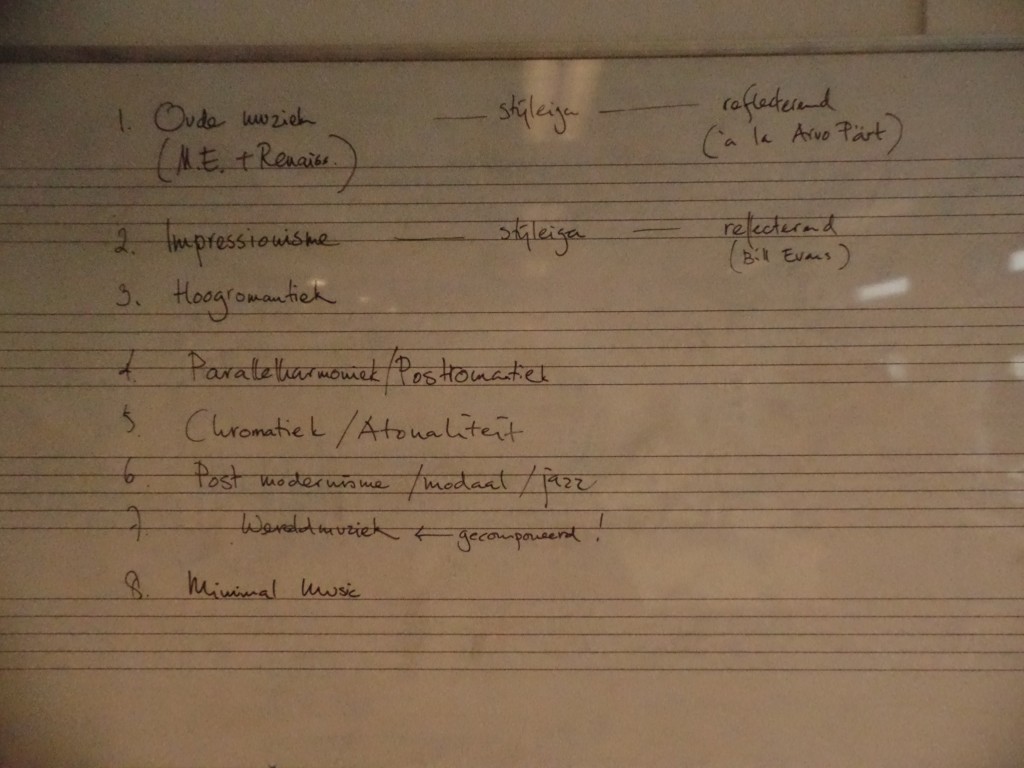 1. Oude muziek — stijleigen — reflecterend
(M.E. + Renaiss.) (à la Arvo Pärt)
2. Impressionisme — stijleigen — reflecterend
(Bill Evans)
3. Hoogromantiek
4. Parallelharmoniek/Postromantiek
5. Chromatiek/Atonaliteit
6. Post modernisme/modaal/jazz
7 Wereldmuziek ← gecomponeerd!
8. Minimal Music